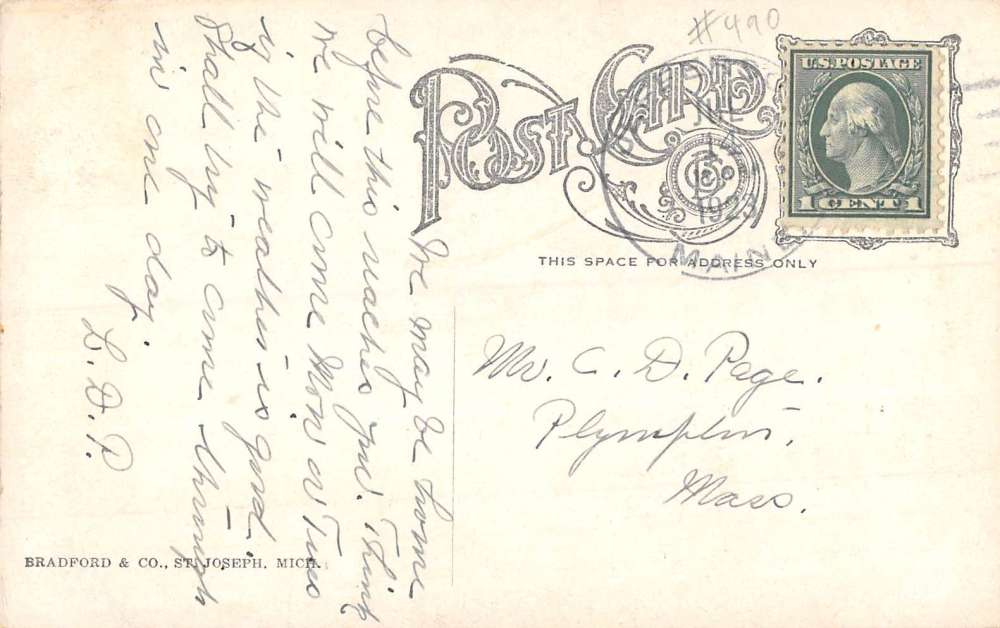 #490
POST CARD
U.S. POSTAGE
1 CENT 1
1923
MAINE
THIS SPACE FOR ADDRESS ONLY
We may be home
before this reaches you. Think
we will come Mon or Tues
if the weather is good.
Shall try to come through
in one day.
L. D. P.
Mr. C. D. Page.
Plympton,
Mass.
BRADFORD & CO., ST. JOSEPH, MICH.